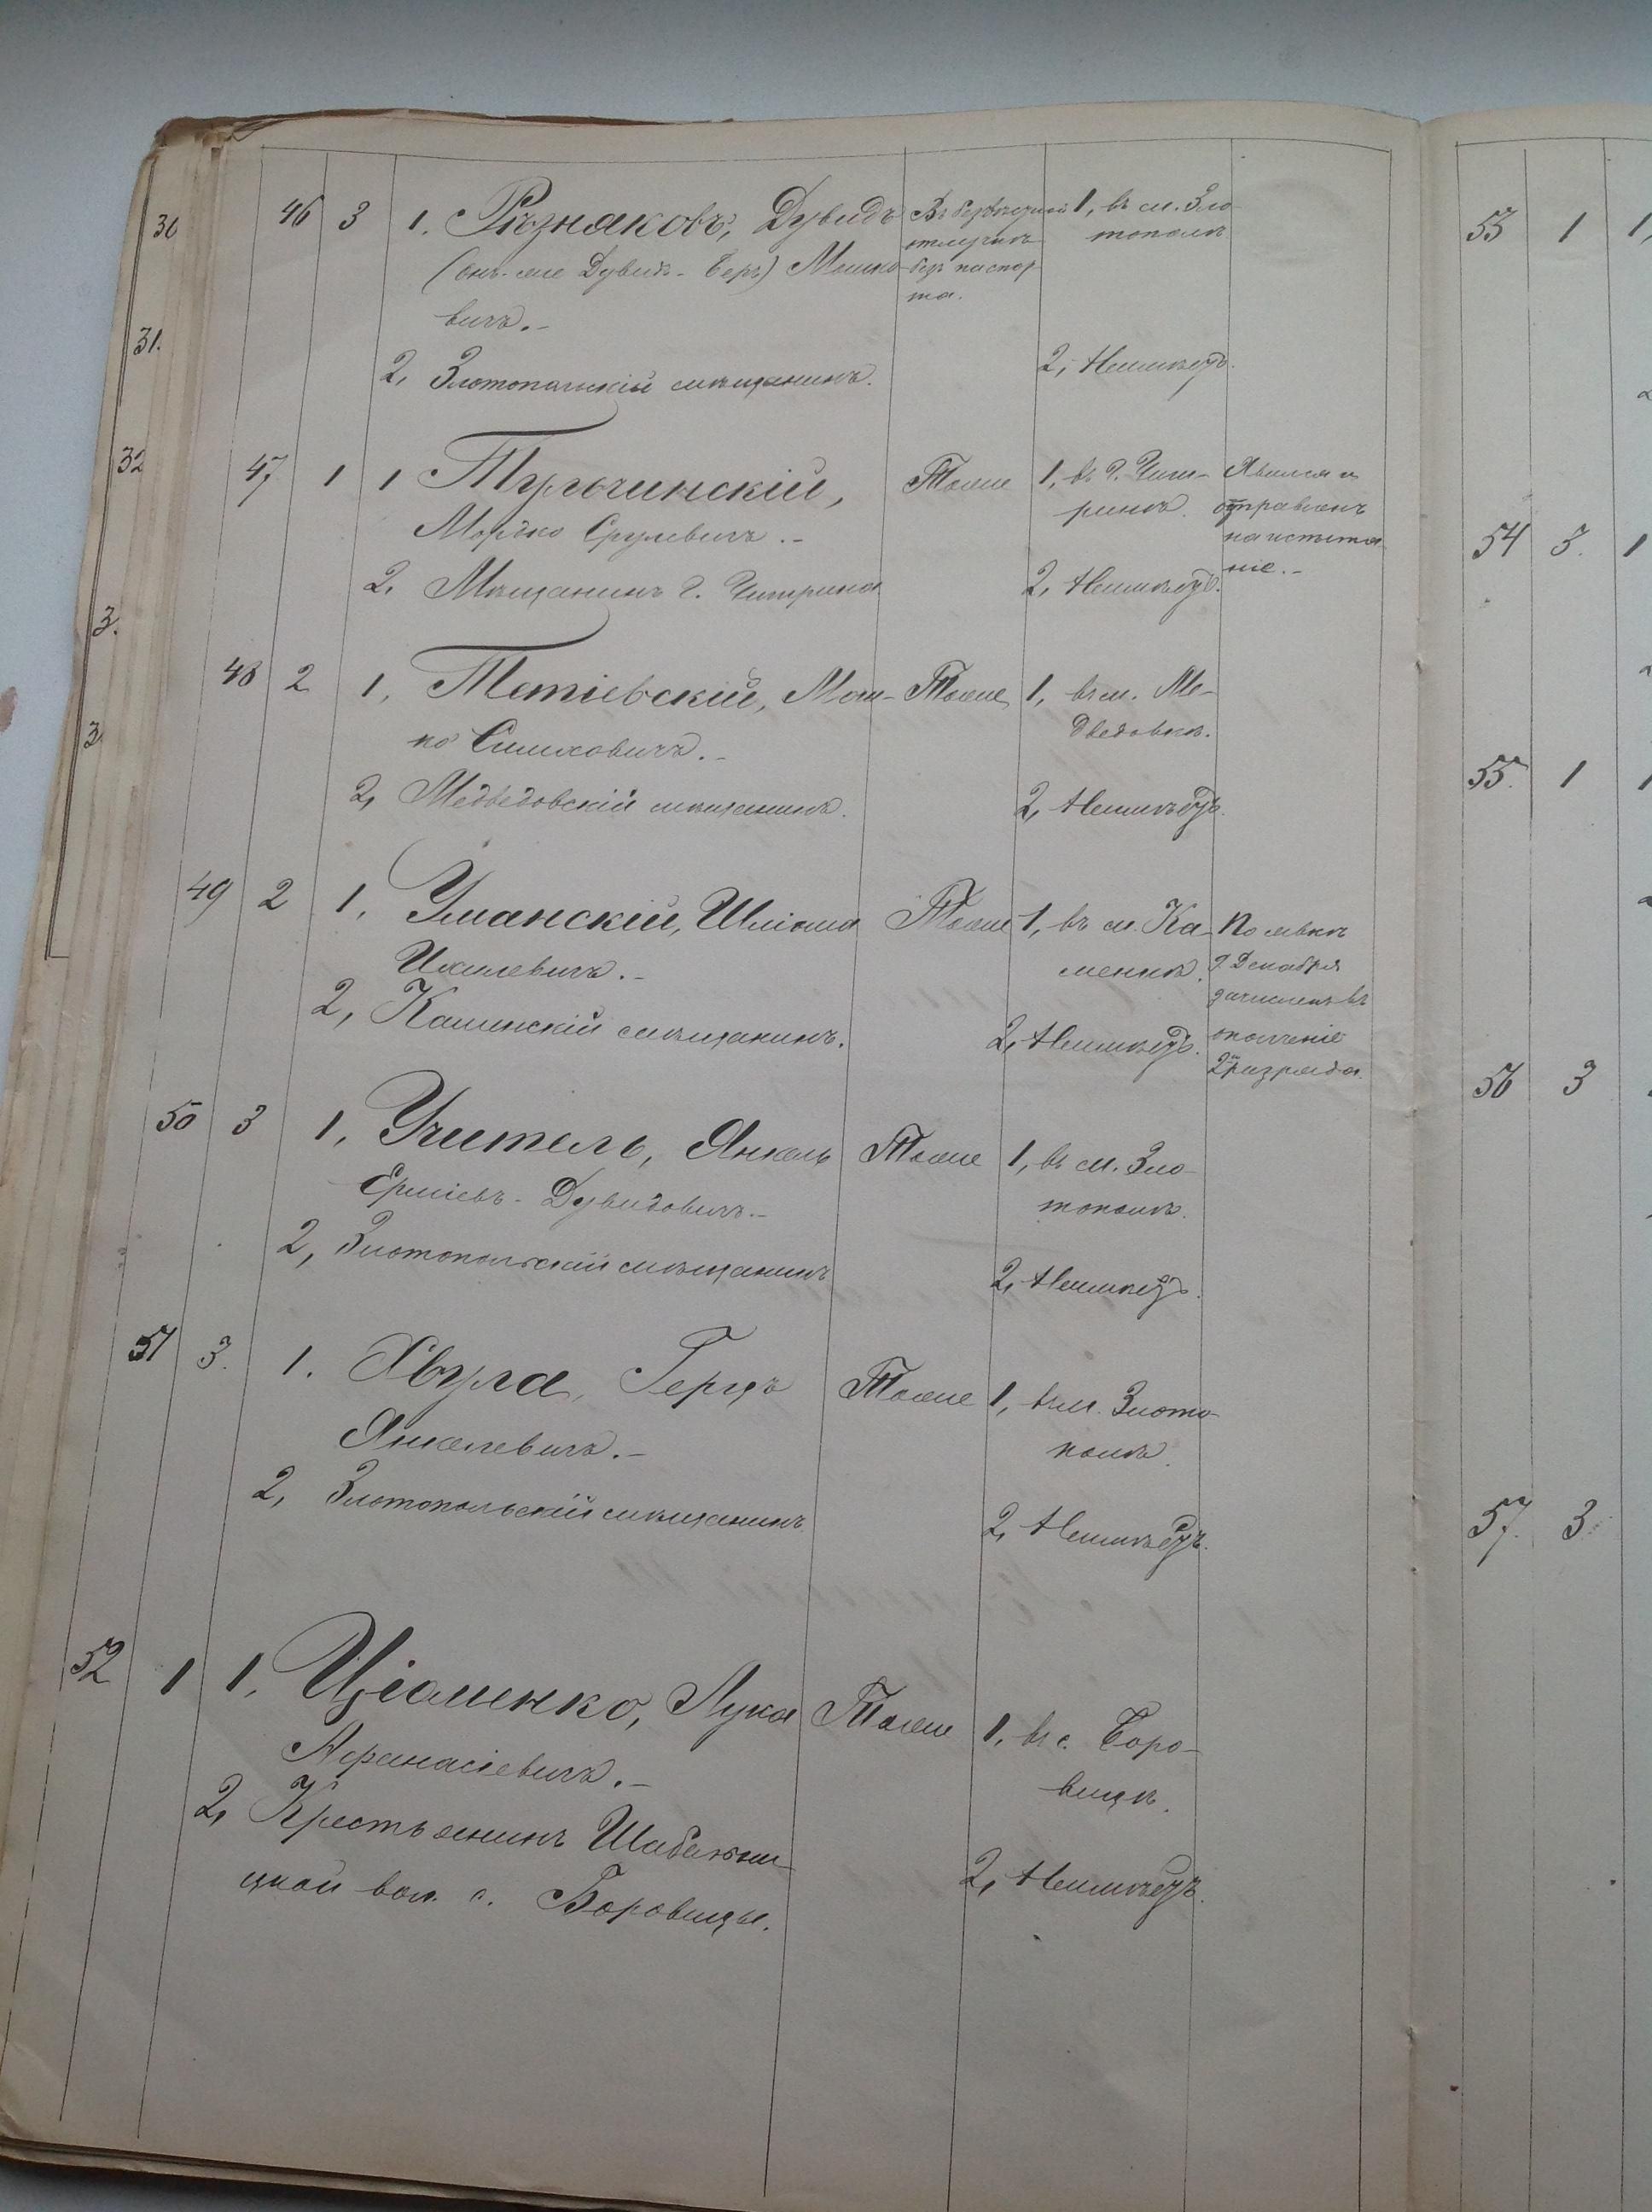 30
31.
32
3.
3.
46 3 1. Рѣзняковъ, Дувидъ
(онъ-же Дувидъ-Беръ) Мошко-
вичъ.-
2, Златопольскій мѣщанинъ.
Въ безвѣстной
отлучкѣ
безъ паспор-
та.
1, въ м. Зла-
тополѣ
2, Неимѣетъ.
47 1 1 Тульчинскій,
Мордко Срулевичъ.-
2, Мѣщанинъ г. Чигрина
Тоже
1, въ г. Чиги-
ринѣ.
2, Неимѣетъ.
Явился и
отправленъ
на испыта
ніе.-
48 2 1, Тетіевскій, Мош-
ко Симховичъ.-
2, Медведовскій мѣщанинъ.
Тоже
1, въ м. Ме-
дведовкѣ.
2, Неимѣетъ.
49 2 1, Уманскій, Шліома
Ихилевичъ.-
2, Каминскій мѣщанинъ.
Тоже
1, въ м. Ка-
менкѣ.
2, Неимѣетъ.
По явкѣ
9. Декабря
зачисленъ въ
ополченіе
2 разряда.
50 3 1, Учитель, Янкель
Ершіевъ-Дувидовичъ.-
2, Златопольскій мѣщанинъ
Тоже
1, въ м. Зла-
тополѣ.
2, Неимѣетъ.
51 3. 1. Хвула, Герцъ
Янкелевичъ.-
2, Златопольскій мѣщанинъ.
Тоже
1, въ м. Злато-
полѣ.
2, Неимѣетъ.
52 1 1, Ціоменко, Лука
Афанасіевичъ.-
2, Крестьянинъ Шабельни-
цкой вол. с. Боровицы.
Тоже
1, въ с. Боро-
вицѣ.
2, Неимѣетъ.
53 1 1,
54 3. 1
55. 1
56 3
57. 3.